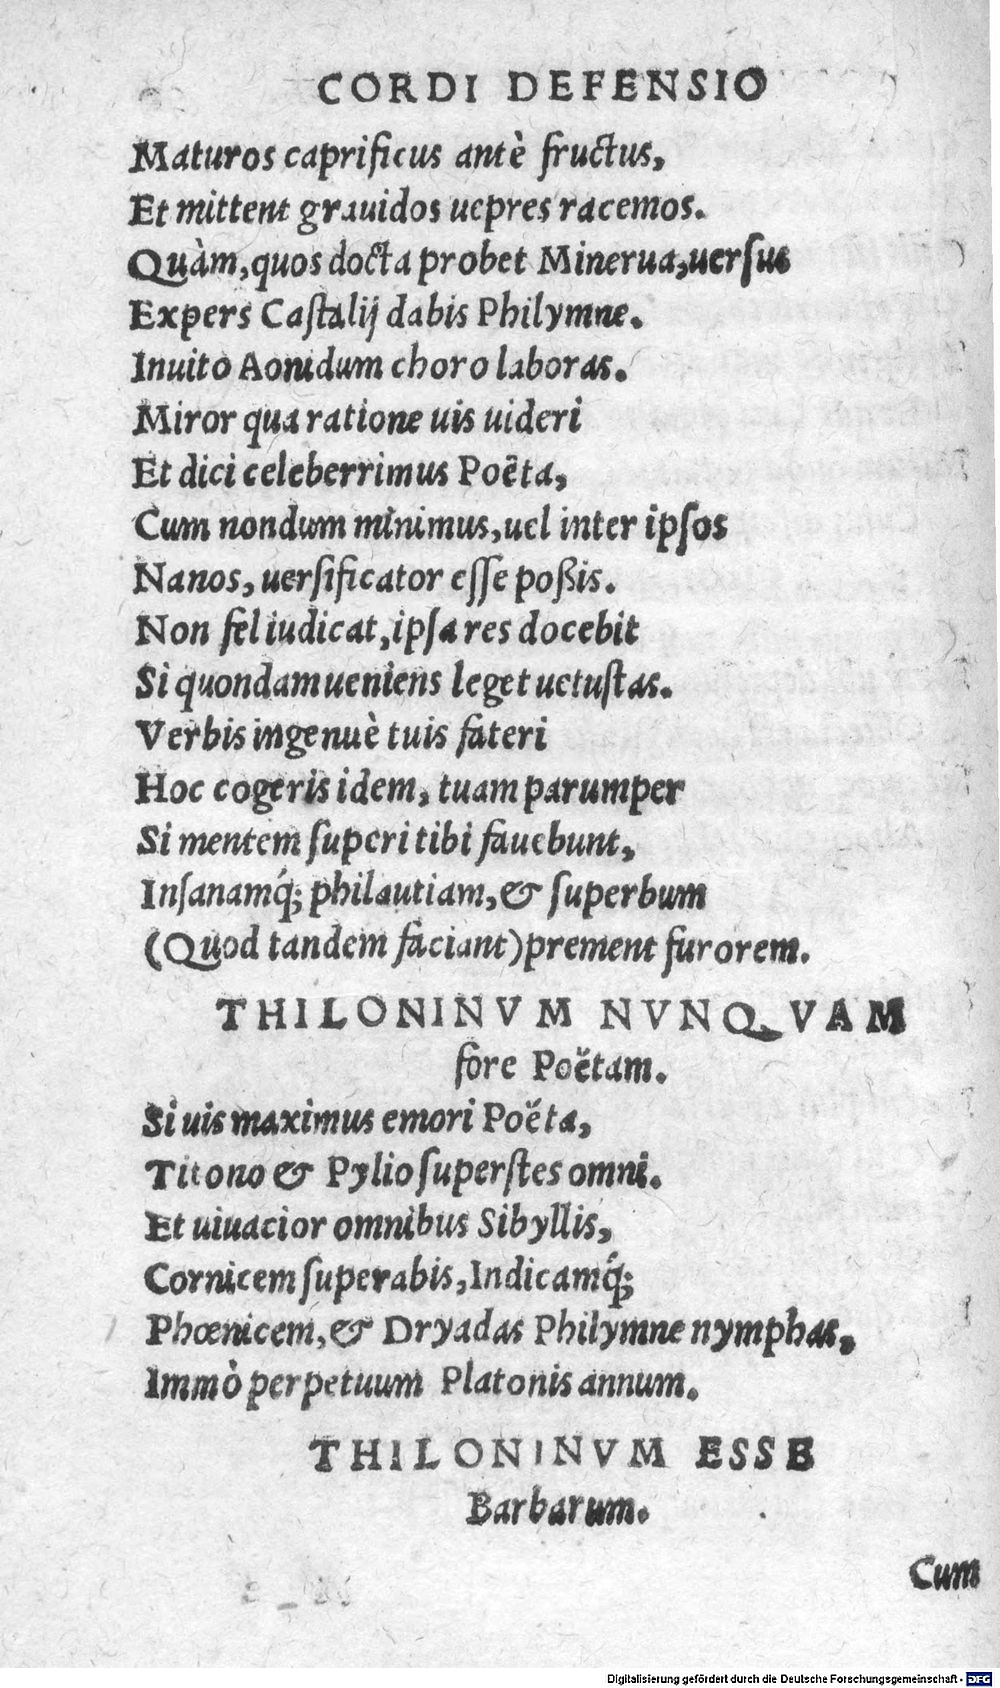 CORDI DEFENSIO
Maturos caprificus antè fructus,
Et mittent grauidos uepres racemos.
Quàm, quos docta probet Minerua, uersus
Expers Castalij dabis Philymne.
Inuito Aonidum choro laboras.
Miror qua ratione uis uideri
Et dici celeberrimus Poëta,
Cum nondum minimus, uel inter ipſos
Nanos, uerſificator eſſe poßis.
Non fel iudicat, ipſa res docebit
Si quondam ueniens leget uetuſtas.
Verbis ingenuè tuis fateri
Hoc cogeris idem, tuam parumper
Si mentem ſuperi tibi fauebunt,
Inſanamq́; philautiam, & ſuperbum
(Quod tandem faciant) prement furorem.
THILONINVM NVNQVAM
fore Poëtam.
Si uis maximus emori Poëta,
Titono & Pylio ſuperſtes omni.
Et uiuacior omnibus Sibyllis,
Cornicem ſuperabis, Indicamq́;
Phœnicem, & Dryadas Philymne nymphas,
Immò perpetuum Platonis annum.
THILONINVM ESSE
Barbarum.
Cum
Digitalisierung gefördert durch die Deutsche Forschungsgemeinschaft - DFG